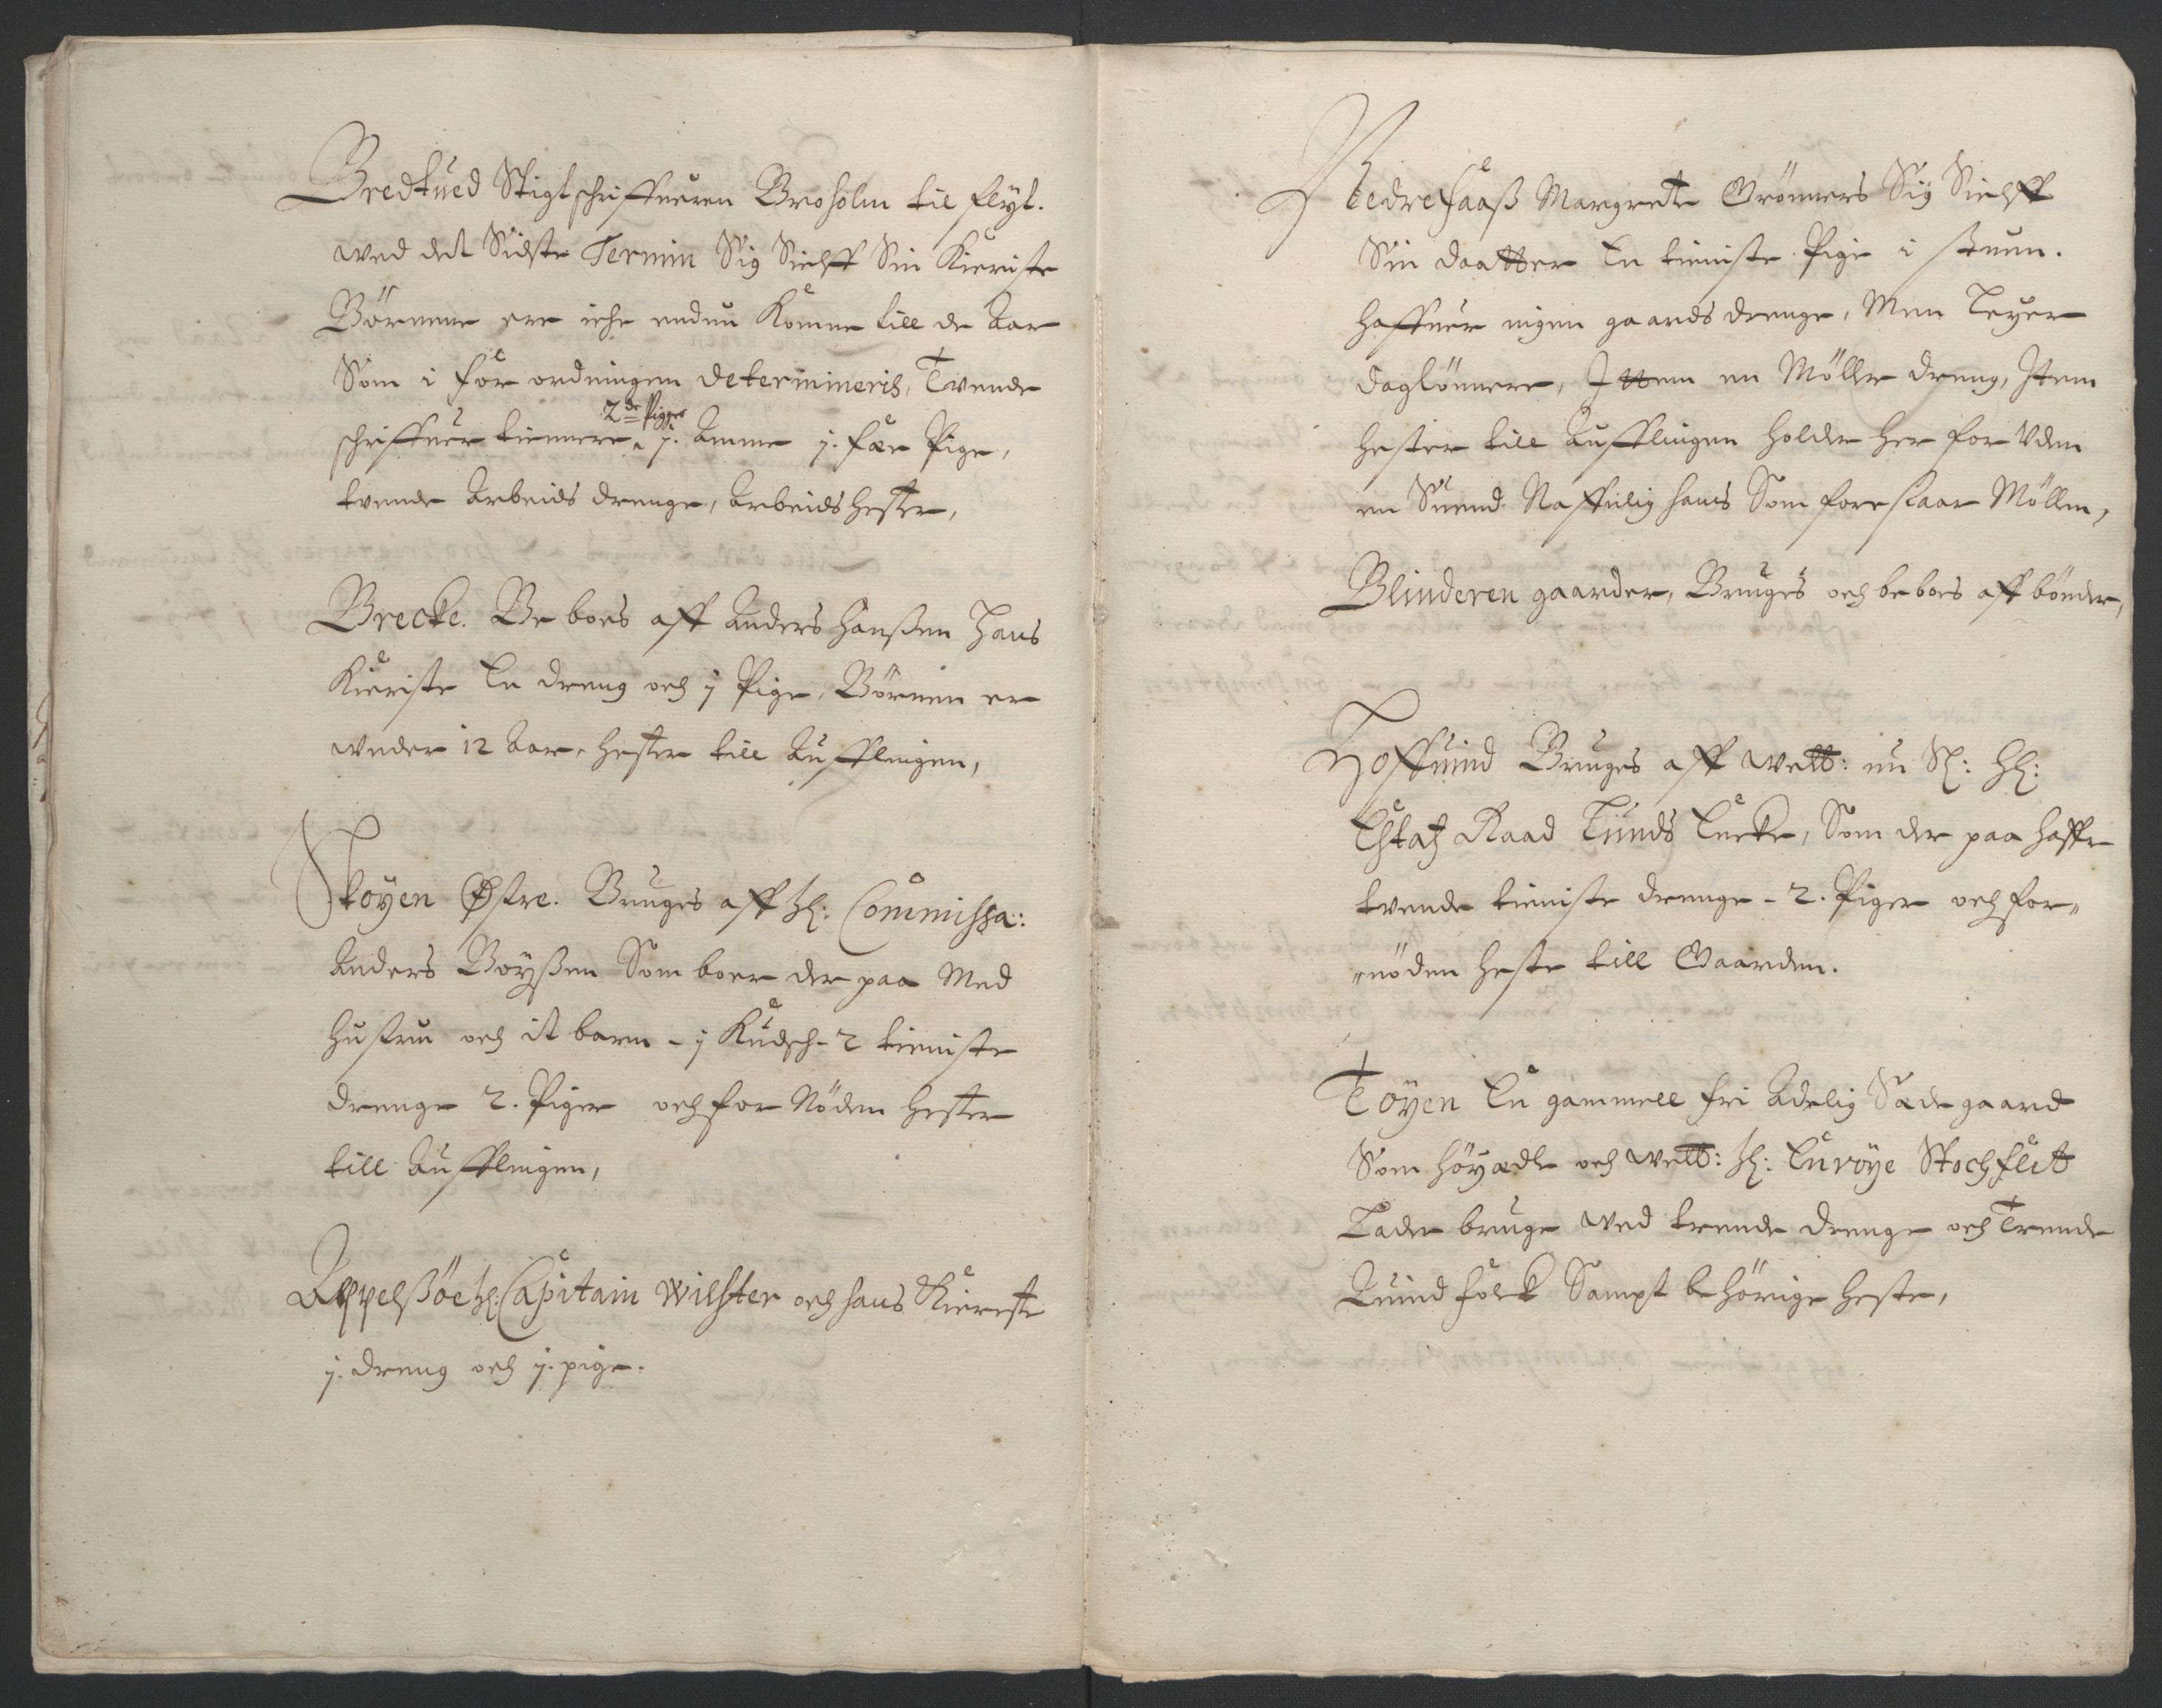 Bredtued Stigtschriffueren Broholm til flyt.
wed det Sidste Termin Sig Sielff Sin Kieriste
Börnene ere iche endnu Komne till de Aar
Som i for ordningen determineris, Tvende
2de Piger
schriffuer tiennere, j. Amme j. fæe Pige,
tvende Arbeids drenge, Arbeids hester,
Brecke. Be boes aff Anders Hanßen Hans
Kieriste En dreng och j Pige, Börnen er
under 12 Aar, hester till Aufflingen,
Skoyen Østre. Bruges aff Hr: Commissa:
Anders Boyßen Som boer der paa Med
hustru och it barn - j Kudsch - 2 tieniste
drenge 2. Piger och for Nöden hester
till Aufflingen,
Appelßöe Hr: Capitain Wilster och hans Kiereste
j. dreng och j. pige.
Bedrehaaß Margrete Grönners Sig Sielff
Sin daatter En tieniste Pige i stuen.
haffuer ingen gaards drenge, Men Leyer
daglönnere, Ittem en Möller dreng, Item
hester till Aufflingen holder her for Uden
en Suend Naffnlig hans Som forestaar Möllen,
Blinderen gaarder, Bruges och be boes aff bönder,
Hoffuind Bruges aff welb: nu Sl: Hr:
Etstatz Raad Lunds Encke, Som der paa haffr
tvende tieniste drenge - 2. Piger och for„
„nöden heste till Gaarden.
Töyen En gammell fri Adelig Sæde gaard
Som höyædle och welb: Hr: Stochflet
Lader bruge wed trende drenge och Trende
Quind folck Sampt behörige heste,